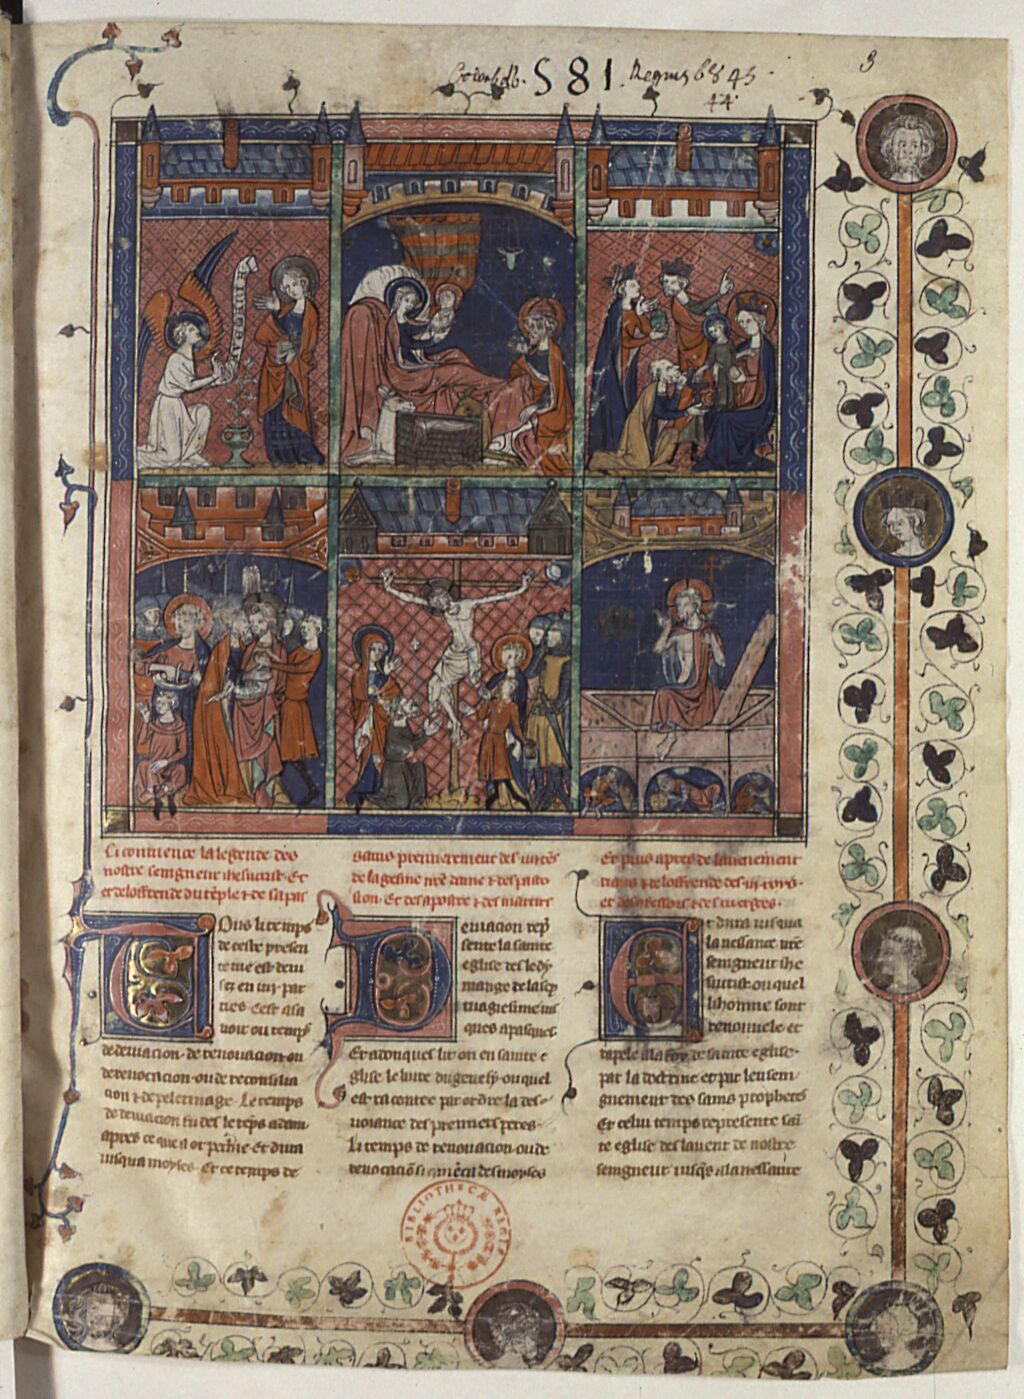 S 81. Regius 6845
44
3
Ci commence la legende des
sains premierement des vertus
Et puis apres de lavenement
nostre seingneur ihesucrist. Et
de la gesine nre dame et des pasto
et de loffrende du temple et de sa pas
sion. Et des apostres et des martirs
Tous li temps
de ceste presen
te vie est devi
sez en iiii par
ties. Cest a sa
voir ou temps
de deviacion. de renovacion ou
de revocacion. ou de reconsilia
cion et de pelerinage. Le temps
de deviacion fu des le temps adam
apres ce que il ot pechie. Et dura
iusqua moyses. Et ce temps de
Deviacion repre
sente la sainte
eglise des le dy
mange de la sep
tuagiesime ius
ques a pasques
Et adonques lit on en sainte e
glise le livre du genesy. ou quel
est racontee par ordre la des
voiance des premiers peres.
Li temps de renovacion ou de
revocacion si commenca des moyses
Et dura iusqua
la nessance nre
seingneur ihe
sucrist. ou quel
li homme sont
renouvele et
rapele a la foy de sainte eglise.
par la doctrine et par lensein
gnement des sains prophetes
Et celui temps represente sain
te eglise des lavent de nostre
seingneur iusqs a la nessance
BIBLIOTHECÆ REGIÆ